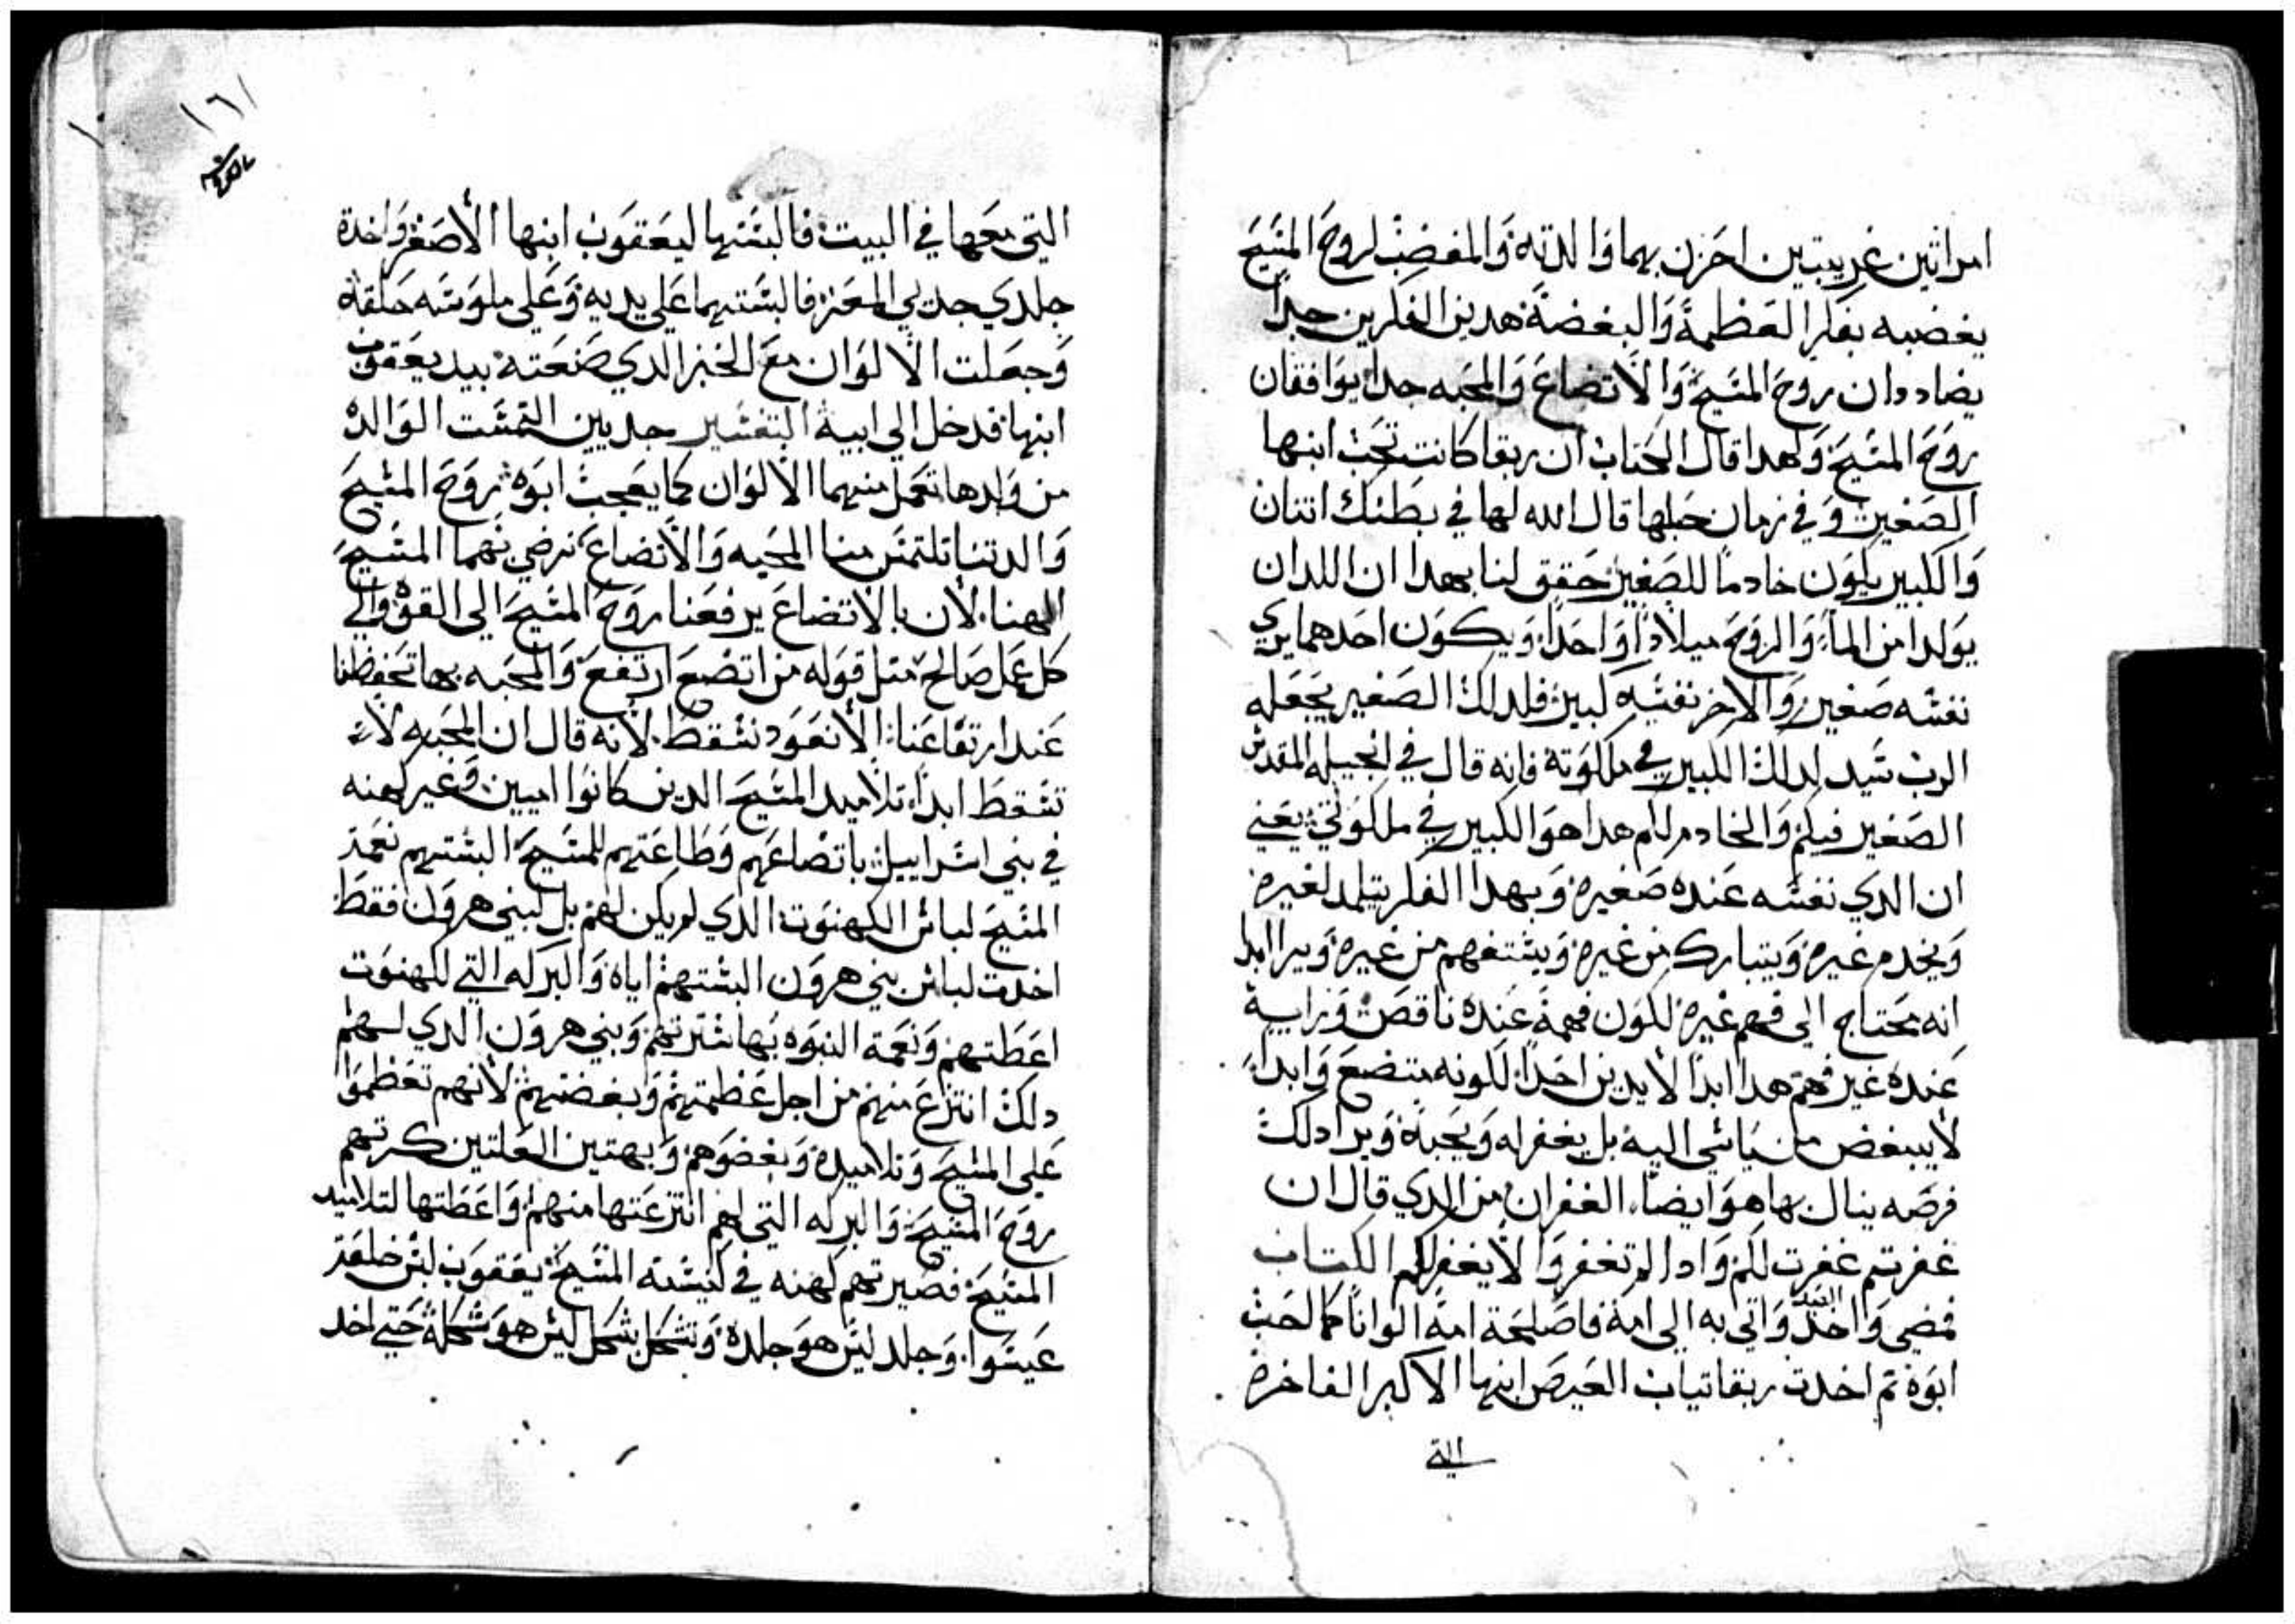 امراتين غريبتين احزن بهما والدته والمغضب لروح المسيح
يغضبه بفكر العظمة والبغضة هدين الفكرين جدا
يضاددان روح المسيح والاتضاع والمحبه جدا يوافقان
روح المسيح ولهدا قال الكتاب ان ربقا كانت تحب ابنها
الصغير وفي زمان حبلها قال الله لها في بطنك اتنان
والكبير يكون خادما للصغير حقق لنا بهدا ان اللدان
يولدا من الماء والروح ميلادا واحدا ويكون احدهما يري
نفسه صغير والاخر نفسه كبير فلدلك الصغير يجعله
الرب سيد لدلك الكبير في ملكوته فانه قال في انجيله المقدس
الصغير فيكم والخادم لكم هدا هو الكبير في ملكوتي يعني
ان الدي نفسه عنده صغيره وبهدا الفكر يتلمد لغيره
ويخدم غيره ويتبارك من غيره ويستفهم من غيره ويرا ابدا
انه محتاج الي فهم غيره لكون فهمه عنده ناقص ورايه
عنده غير فهم هدا ابدا لا يدين احدا لكونه متضع وابدا
لا يبغض من ياسي اليه بل يغفر له ويحبه ويرا دلك
فرصه ينال بها هو ايضا الغفران من الدي قال ان
غفرتم غفرت لكم وادا لم تغفروا لا يغفر لكم الكتاب
فمضي واخد الصيد واتي به الي امه فاصلحة امه الوانا كما احب
ابوه تم اخدت ربقا تياب العيص ابنها الاكبر الفاخره
التي
١٦١
التي معها في البيت فالبستها ليعقوب ابنها الاصغر واخدة
جلدي جديي المعز فالبستهما علي يديه وعلي ملوسة حلقه
وجعلت الالوان مع الخبز الدي صنعته بيد يعقوب
ابنها فدخل الي ابيه التفسير جديين التمست الوالده
من ولدها تعمل منهما الالوان كما يعجب ابوه روح المسيح
والدتنا تلتمس منا المحبه والاتضاع نرضي بهما المسيح
الهنا لان بالاتضاع يرفعنا روح المسيح الي القوه والي
كل عمل صالح متل قوله من اتضع ارتفع والمحبه بها تحفظنا
عند ارتفاعنا الا نعود نسقط لانه قال ان المحبه لا
تسقط ابدا تلاميد المسيح الدين كانوا اميين وغير كهنه
في بني اسراييل باتضاعهم وطاعتهم للمسيح البستهم نعمة
المسيح لباس الكهنوت الدي لم يكن لهم بل لبني هرون فقط
اخدت لباس بني هرون البستهم اياه والبركه التي للكهنوت
اعطتهم ونعمة النبوه بها سترتهم وبني هرون الدي لهم
دلك انتزع منهم من اجل عظمتهم وبغضتهم لانهم تعظموا
علي المسيح وتلاميده وبغضوهم وبهتين العلتين كرتهم
روح المسيح والبركه التي لهم انتزعتها منهم واعطتها لتلاميد
المسيح فصيرتهم كهنه في كنيسة المسيح يعقوب لبس خلقة
عيسوا وجلد ليس هو جلده وتشكل بشكل ليس هو شكله حتي اخد